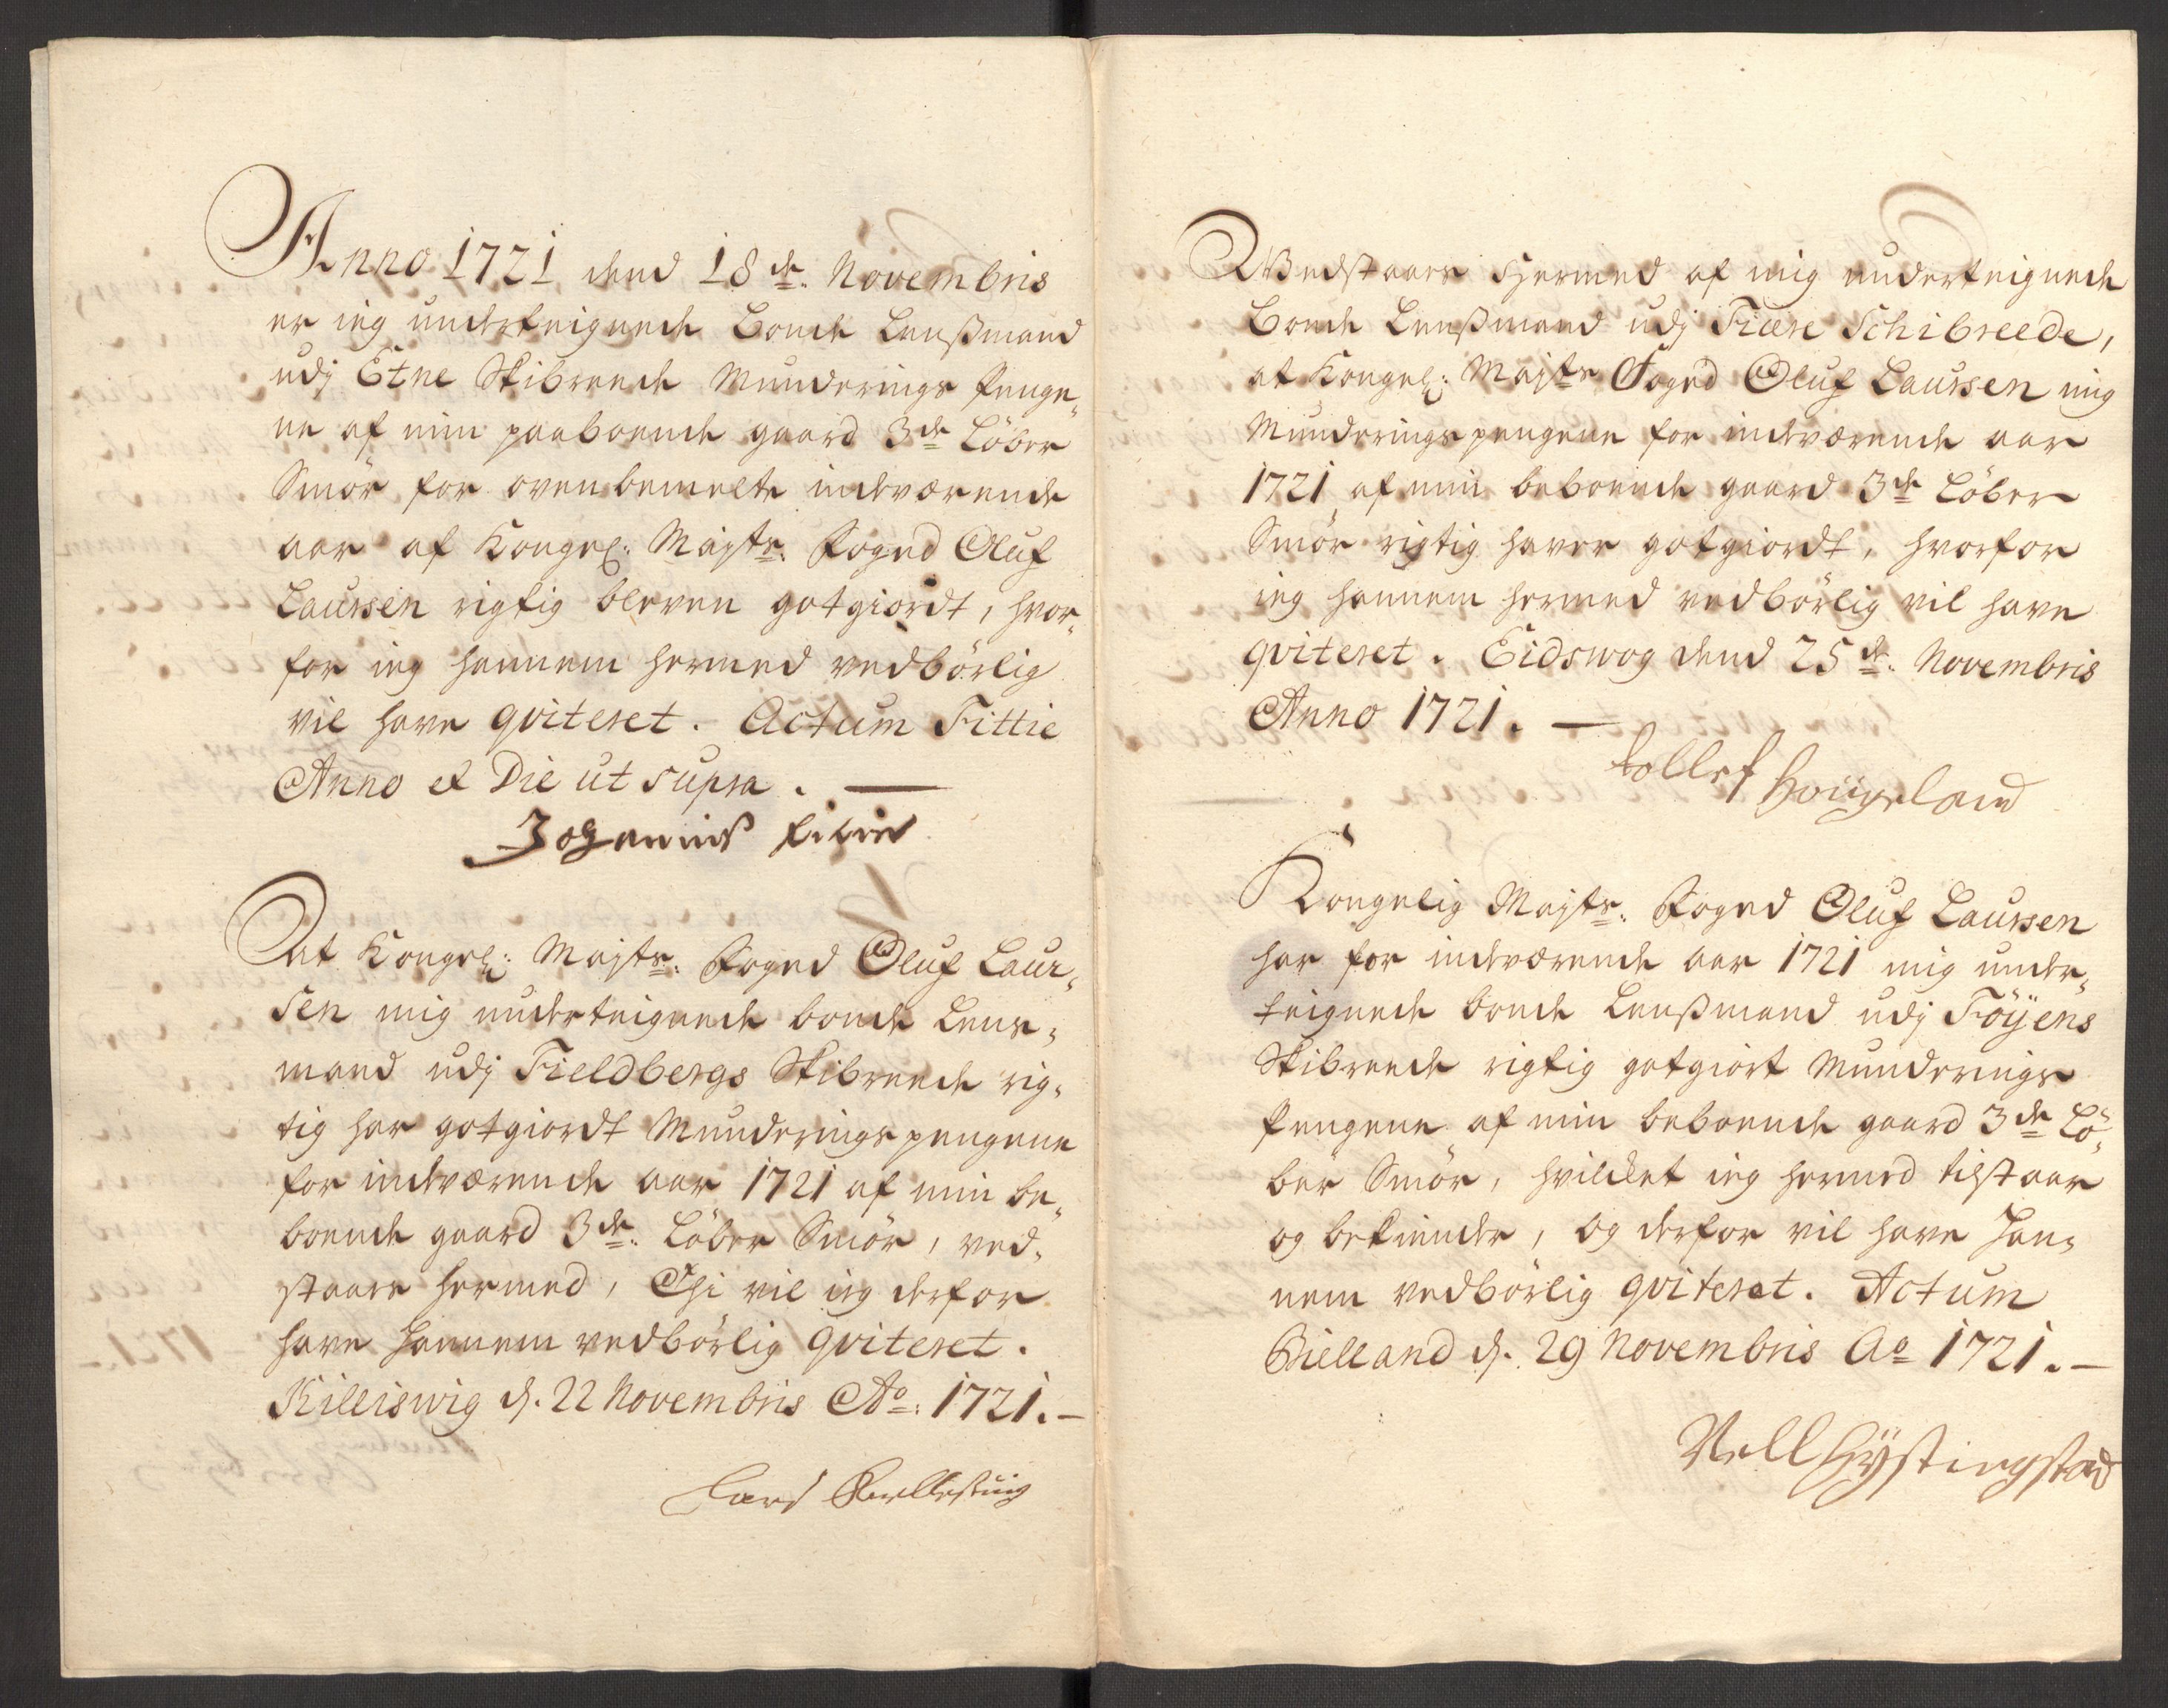 Anno 1721 dend 18de. Novembris
er ieg underteignede Bonde Lenßmand
udj Etne Skibreede Munderings Penge-
ne af min paaboende gaard 3de Löber
Smör for ovenbemelte indeværende
aar af Kongel: Mayts. Foged Oluf
Laursen rigtig bleven gotgiordt, hvor-
for ieg hannem hermed vedbörlig
vil have qviteret. Actum Fittie
Anno et Die ut supra. —
Johannis
At Kongel: Mayts. Foged Oluf Laur-
sen mig underteignede bonde Lens-
mand udj Fieldbergs Skibreede rig-
tig har gotgiordt Munderings pengene
for indeværende aar 1721 af min be-
boende gaard 3de. Löber Smör, ved-
staars hermed, Thi vil ieg derfor
have hannem vedbörlig qviteret.
Killiswig d. 22 Novembris Ao: 1721. —
Lars
Vedstaars hermed af mig underteignede
Bonde Lenßmand udj Fiære Schibreede,
at Kongel: Mayts Foged Oluf Laursen mig
Munderingspengene for indeværende aar
1721 af min beboende gaard 3de Löber
Smör rigtig haver gotgiordt, hvorfor
ieg hannem hermed vedbörlig vil have
qviteret. Eidswog dend 25de. Novembris
Anno 1721. —
tollef hougeland
Kongelig Mayts. Foged Oluf Laursen
har for indeværende aar 1721 mig under-
teignede bonde Lenßmand udj Föyens
Skibreede rigtig gotgiort Munderings
Pengene af min beboende gaard 3de Lö-
ber Smör, hvilcket ieg hermed tilstaar
og bekiender, og derfor vil have Han-
nem vedbörlig qviteret. Actum
Bielland d. 29 Novembris Ao 1721. —
Nell Hystingstad